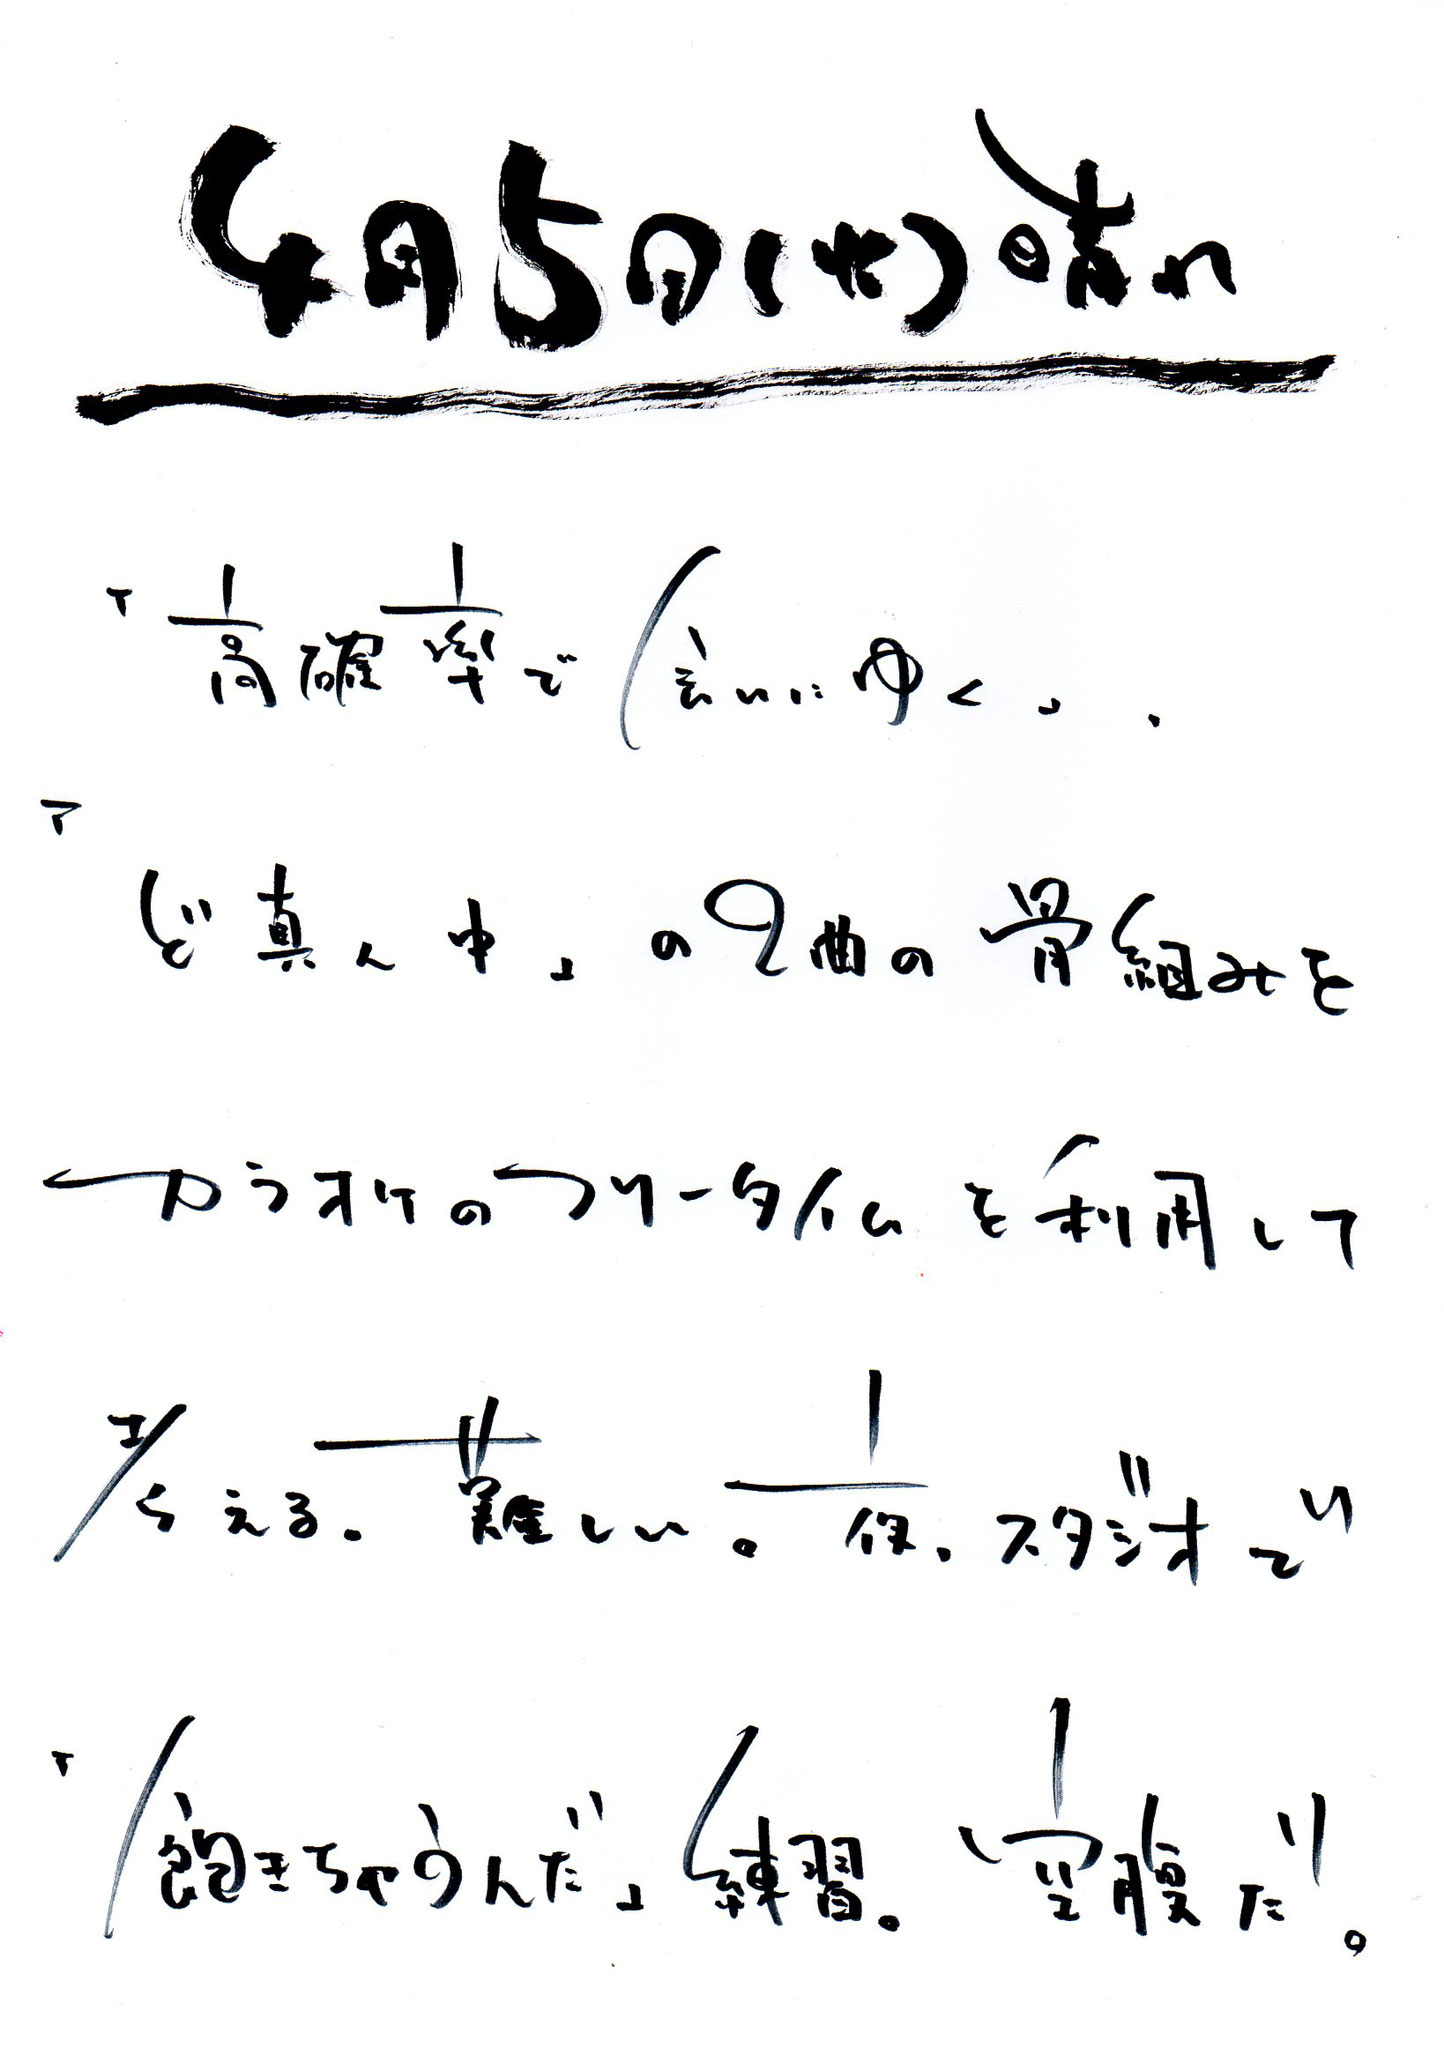 4月5日(火)晴れ
「高確率で言いにゆく」、
「ど真ん中」の2曲の骨組みを
カラオケのフリータイムを利用して
考える。難しい。夜、スタジオで
「飽きちゃうんだ」練習。空腹だ。